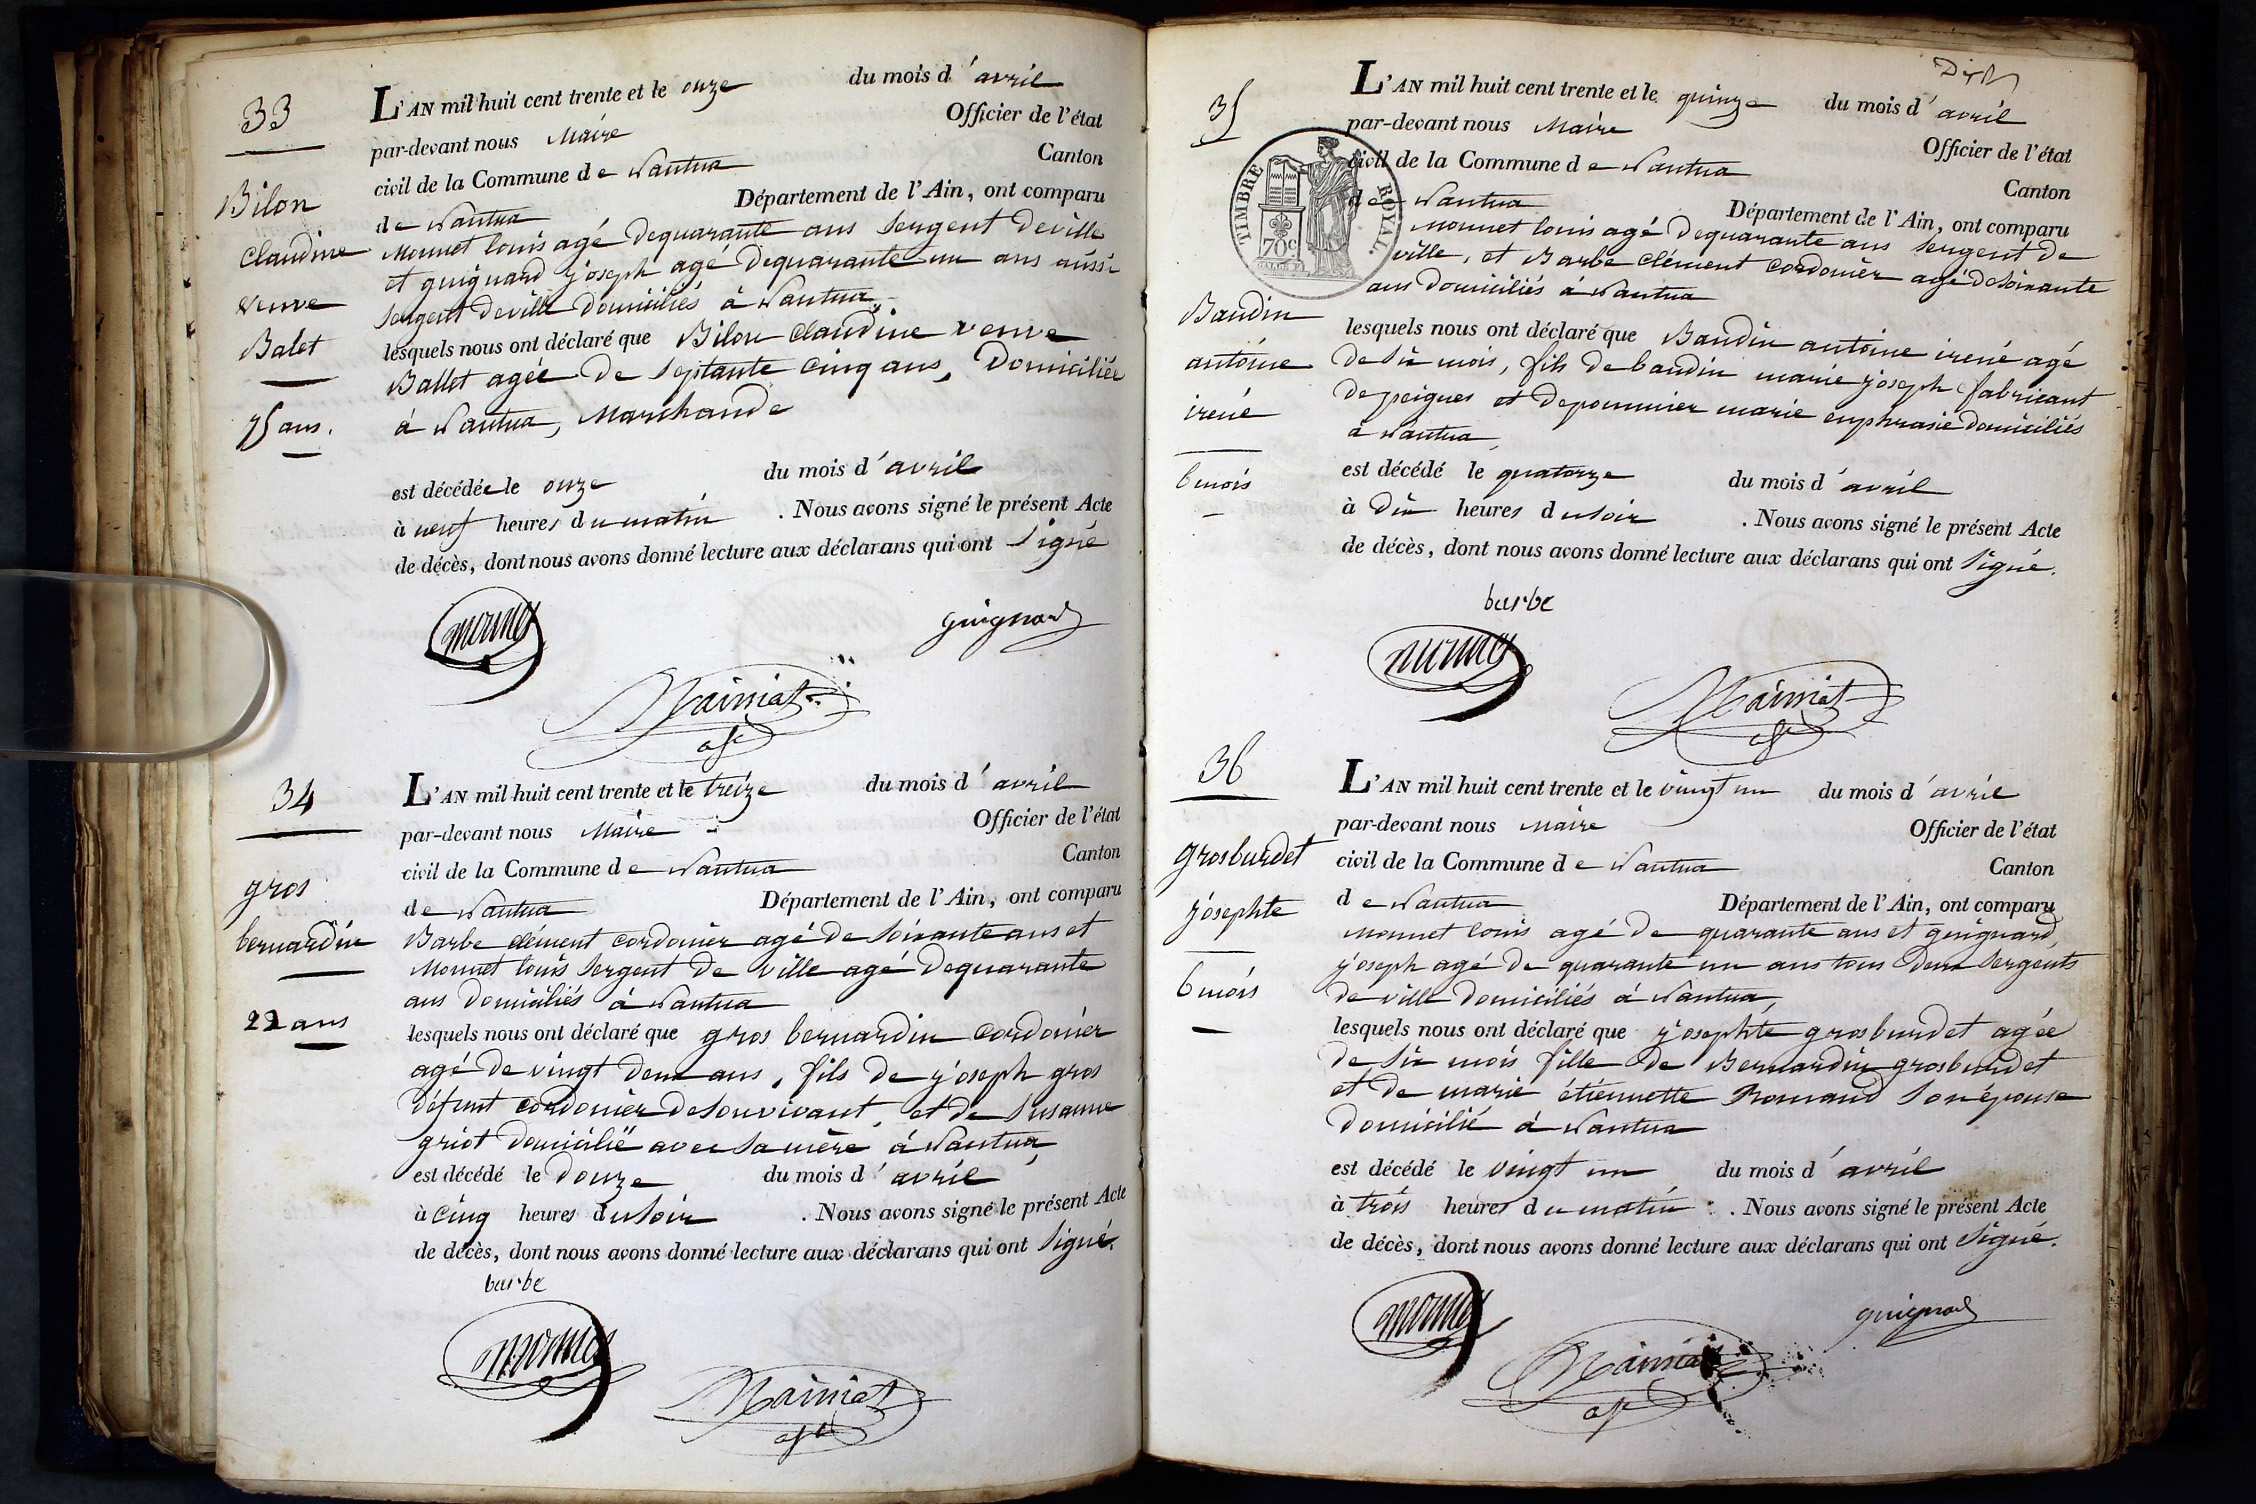 33
Bilon
Claudine
veuve
Balet
75 ans.
L'AN mil huit cent trente et le onze du mois d'avril
par-devant nous Maire Officier de l'état
civil de la Commune de Nantua Canton
de Nantua Département de l'Ain, ont comparu
Monnet louis agé dequarante ans Sergent deville
et guignard j'oseph agé dequarante un ans aussi
Sergent deville Domiciliés à Nantua,
lesquels nous ont déclaré que Bilon Claudine veuve
Ballet agée de Septante cinq ans, Domiciliée
à Nantua, Marchande
est décédée le onze du mois d'avril
à neuf heures du matin . Nous avons signé le présent Acte
de décès, dont nous avons donné lecture aux déclarans qui ont Signé
monnet
guignard
34
gros
bernardin
22 ans
L'AN mil huit cent trente et le treize du mois d'avril
par-devant nous Maire Officier de l'état
civil de la Commune de Nantua Canton
de Nantua Département de l'Ain, ont comparu
Barbe clément cordonier agé de Soixante ans et
Monnet louis Sergent de ville agé Dequarante
ans Domiciliés à Nantua
lesquels nous ont déclaré que gros bernardin Cordonier
agé de vingt deux ans, fils de j'oseph gros
Défunt cordonier deSonvivant, et de Susanne
griot Domicilié avec Sa mère à Nantua,
est décédé le Douze du mois d'avril
à Cinq heures duSoir . Nous avons signé le présent Acte
de décès, dont nous avons donné lecture aux déclarans qui ont Signé.
barbe
monnet
35
TIMBRE ROYAL.
70c
Baudin
antoine
irené
6 mois
L'AN mil huit cent trente et le quinze du mois d'avril
par-devant nous Maire Officier de l'état
civil de la Commune de Nantua Canton
de Nantua Département de l'Ain, ont comparu
Monnet louis agé Dequarante ans Sergent de
ville, et Barbe clément cordonier agé deSoixante
ans Domiciliés à Nantua
lesquels nous ont déclaré que Baudin antoine irené agé
de Six mois, fils de baudin marie j'oseph fabricant
de peignes et depommier marie euphrasie domiciliés
à Nantua,
est décédé le quatorze du mois d'avril
à Dix heures duSoir . Nous avons signé le présent Acte
de décès, dont nous avons donné lecture aux déclarans qui ont Signé.
barbe
monnet
36
grosburdet
j'osephte
6 mois
L'AN mil huit cent trente et le vingt un du mois d'avril
par-devant nous Maire Officier de l'état
civil de la Commune de Nantua Canton
de Nantua Département de l'Ain, ont comparu
Monnet louis agé De quarante ans et guignard,
j'oseph agé De quarante un ans tous Deux Sergents
de ville Domiciliés à Nantua,
lesquels nous ont déclaré que j'osephte grosburdet agée
de Six mois fille De Bernardin grosburdet
et De marie étiennette Romand Son épouse
Domicilié à Nantua
est décédé le vingt un du mois d'avril
à trois heures du matin . Nous avons signé le présent Acte
de décès, dont nous avons donné lecture aux déclarans qui ont Signé.
monnet
guignard